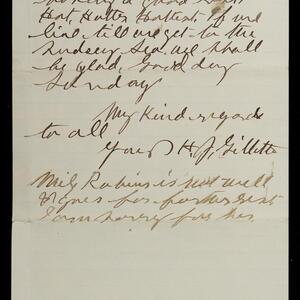 Hot, Hotter Hottest. If we
live till we get to the
we shall
be glad, Good day
Sunday
My Kind regards
to all
Yours H J Gillette
Miss Robins is not well
& goes for
I am sorry for her